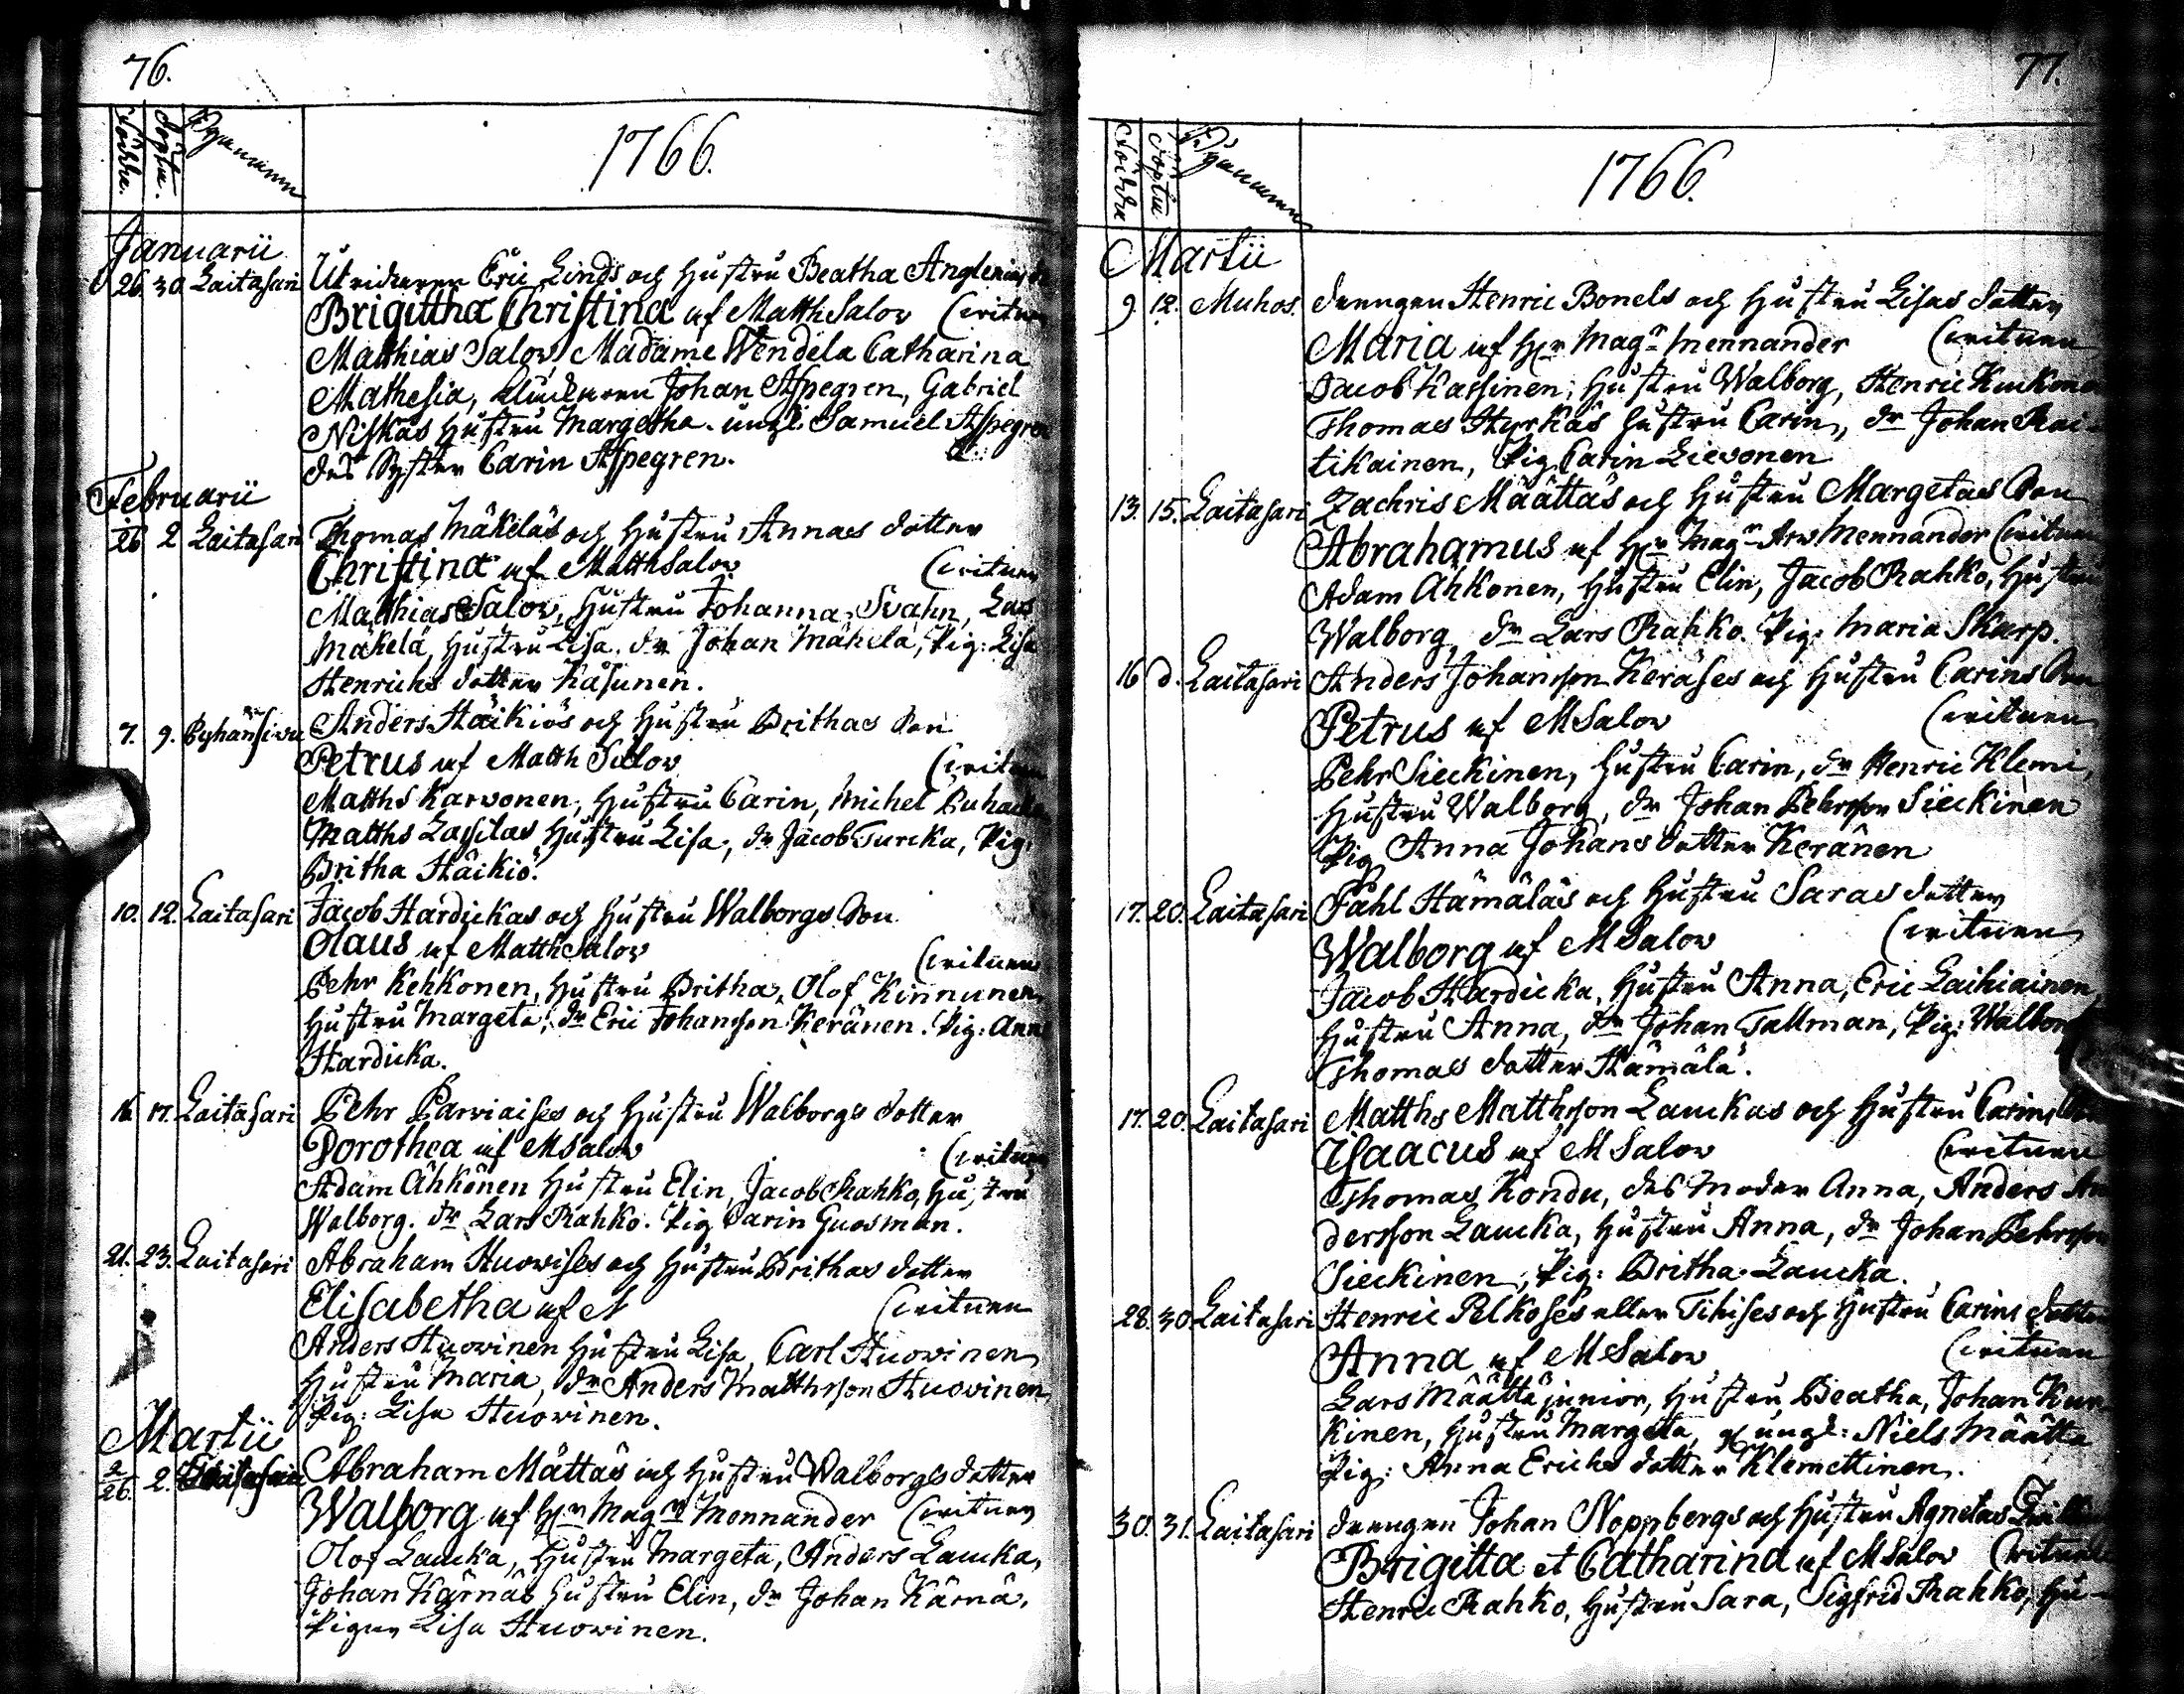 76.
Födde. Döpte. Byarnamn
1766.
Januarii
26. 30 Laitasari Utridaren Eric Linds och Hustru Beatha
Brigittha Christina af Matth Salov (vitnen
Matthias Salov, Madame Wendela Catharina
Mathesia, Johan Aspegren, Gabriel
Niskas Hustru Margetha. ungk: Samuel Aspegren
des Syster Carin Aspegren.
Februarii
26 2 Laitasari Thomas Mäkeläs och Hustru Annas dotter
Christina af Matth Salov (vitnen
Matthias Salov, Hustru Johanna Svahn, Lars
Mäkelä, Hustru Lisa. dr Johan Mäkelä, Pig: Lisa
Henrichs dotter Käsunen.
7. 9. Pyhänsivu Anders Häikiös och Hustru Brithas Son
Petrus af Matth Salov (vitnen
Matths Karvonen, Hustru Carin, Michel
Matths Lassilas Hustru Lisa, dr Jacob Turcka, Pig:
Britha Häikiö.
10. 12. Laitasari Jacob Hardickas och Hustru Walborgs Son
Olaus af Matth Salov (vitnen
Pehr Kehkonen, Hustru Britha, Olof Kinnunen,
Hustru Margeta, dr Eric Johansson Keränen. Pig: Anna
Hardicka.
16 17. Laitasari Pehr Parviaises och Hustru Walborgs dotter
Dorothea af M Salov (vitnen
Adam Ahkonen Hustru Elin, Jacob Rahko, Hustru
Walborg. dr Lars Rahko. Pig Carin Guosman.
21. 23. Laitasari Abraham Huovises och Hustru Brithas dotter
Elisabetha af M (vitnen
Anders Huovinen Hustru Lisa, Carl Huovinen
Hustru Maria, dr Anders Matthsson Huovinen,
Pig: Lisa Huovinen.
Martii
2/26. 2. Laitasari Abraham Mättäs och Hustru Walborgs dotter
Walborg af Hr Magr Mennander (vitnen
Olof Laucka, Hustru Margeta, Anders Laucka,
Johan Kärnäs Hustru Elin, dr Johan Kärnä,
Pigan Lisa Huovinen.
77.
Födde Döpte Byanamn
1766.
Martii
9. 12. Muhos. drengen Henric Bonels och Hustru Lisas dotter
Maria af Hr Magr Mennander (vitnen
Jacob Kassinen, Hustru Walborg, Henric Kuckonen
Thomas Hyrkäs Hustru Carin, dr Johan Rai-
tikainen, Pig Carin Lievonen
13. 15. Laitasari Zachris Määttäs och Hustru Margetas Son
Abrahamus af Hr Magr Arv Mennander (vitnen
Adam Ahkonen, Hustru Elin, Jacob Rahko, Hustru
Walborg, dr Lars Rahko. Pig: Maria Skarp.
16 d. Laitasari Anders Johansson Keräses och Hustru Carins Son
Petrus af M Salov (vitnen
Pehr Sieckinen, Hustru Carin, dr Henric Klemi,
Hustru Walborg, dr Johan Pehrsson Sieckinen
Pig Anna Johans dotter Keränen
17. 20. Laitasari Påhl Hämäläs och Hustru Saras dotter
Walborg af M Salov (vitnen
Jacob Hardicka, Hustru Anna, Eric Laihiainen,
Hustru Anna, dr Johan Tallman, Pig: Walborg
Thomas dotter Hämälä.
17. 20. Laitasari Matths Matthsson Lauckas och Hustru Carins Son
Isaacus af M Salov (vitnen
Thomas Kondu, des Moder Anna, Anders An
dersson Laucka, Hustru Anna, dr Johan Pehrsson
Sieckinen, Pig: Britha Laucka.
28. 30. Laitasari Henric Pelkoses eller Tihises och Hustru Carins dotter
Anna af M Salov (vitnen
Lars Määttä junior, Hustru Beatha, Johan Kur
kinen, Hustru Margeta, ungk: Niels Määttä
Pig: Anna Erichs dotter Klemettinen.
30. 31. Laitasari drengen Johan Noppbergs och Hustru Agnetas
Brigitta et Catharina af M Salov (vitnen
Henric Rahko, Hustru Sara, Sigfrid Rahko, Hu-